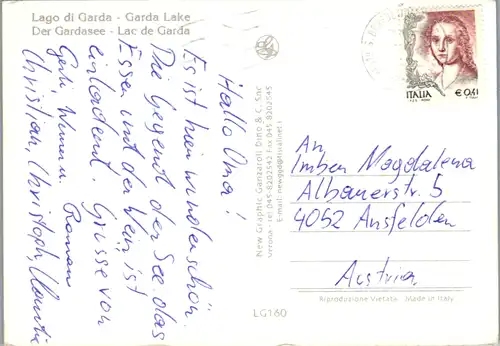 Lago di Garda - Garda Lake
Der Gardasee - Lac de Garda
Hallo Oma!
Es ist hier wunderschön.
Die Gegend der See das
Essen und der Wein ist
einladend. Grüsse von
Gerti, Werner u. Roman
Christian, Christoph,
New Graphic Ganzaroli Dino & C. Snc
Verona - Tel 045 8202542 Fax 045 8202545
LG160
ITALIA
€ 0,41
An
Imben Magdalena
Albanerstr. 5
4052 Ansfelden
Austria
Riproduzione Vietata - Made in Italy